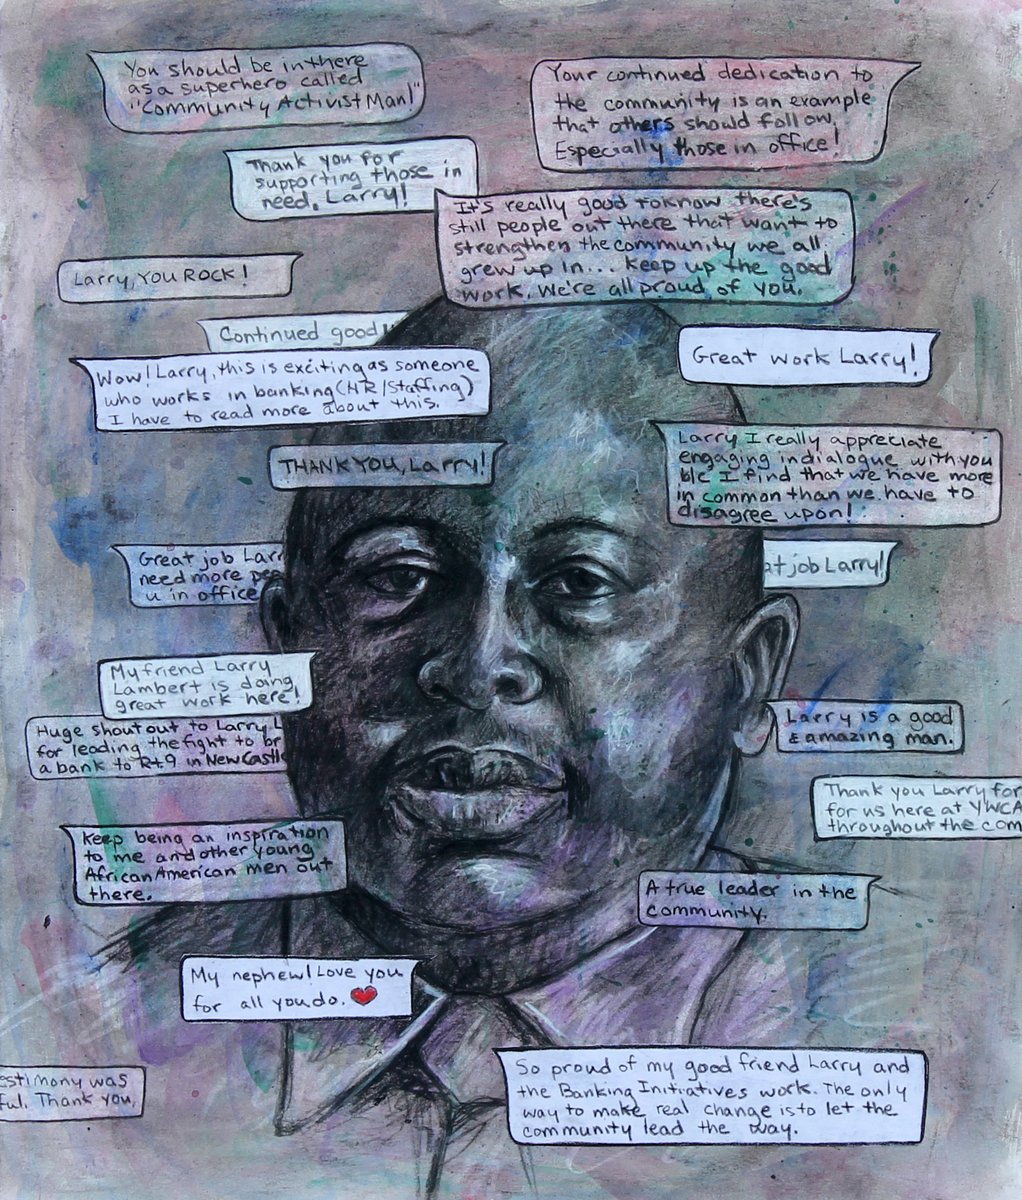 You should be in there
as a superhero called
"Community Activist Man!"
Your continued dedication to
the community is an example
that others should follow,
Especially those in office!
Thank you for
supporting those in
need, Larry!
It's really good to know there's
still people out there that want to
strengthen the community we all
grew up in... Keep up the good
work, We're all proud of you.
Larry, YOU ROCK!
Continued good
Great work Larry!
Wow! Larry, this is exciting as someone
who works in banking (HR/Staffing)
I have to read more about this.
Larry I really appreciate
engaging in dialogue with you
b/c I find that we have more
in common than we have to
disagree upon!
THANK YOU, Larry!
Great job Larr
need more pe
u in office
at job Larry!
My friend Larry
Lambert is doing
great work here!
Huge shout out to Larry L
for leading the fight to br
a bank to Rt 9 in New Castle
Larry is a good
& amazing man.
Thank you Larry for
for us here at YWCA
throughout the com
Keep being an inspiration
to me and other young
African American men out
there.
A true leader in the
community.
My nephew! Love you
for all you do.
estimony was
ful. Thank you,
So proud of my good friend Larry and
the Banking Initiatives work. The only
way to make real change is to let the
community lead the way.